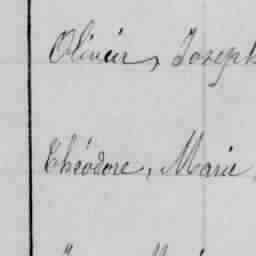 Olivier, Joseph
Théodore, Marie